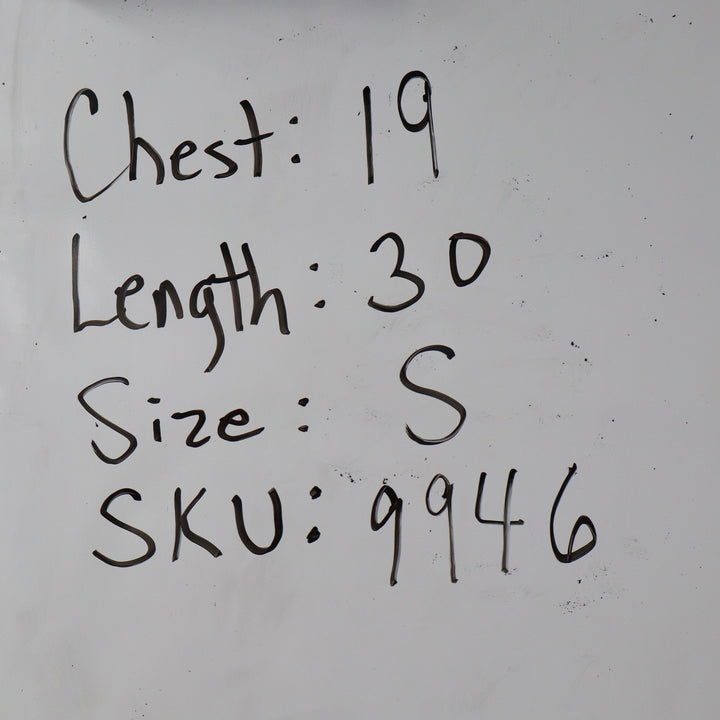 Chest: 19
Length: 30
Size: S
SKU: 9946